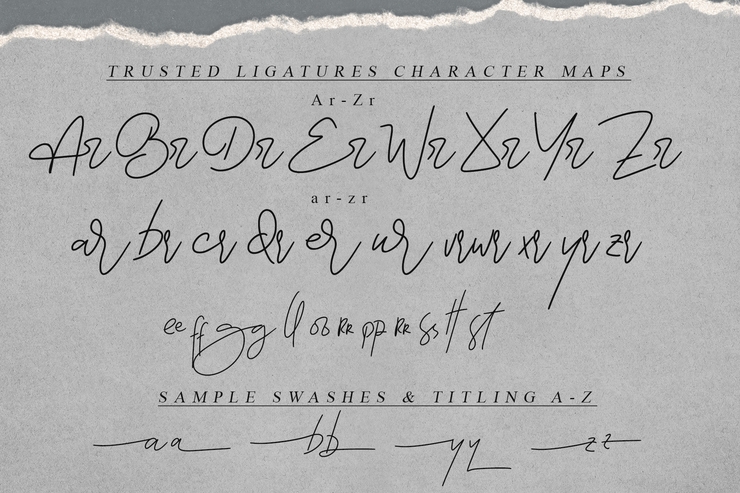 TRUSTED LIGATURES CHARACTER MAPS
Ar-Zr
Ar Br Dr Er Wr Xr Yr Zr
ar-zr
ar br cr dr er ur vr wr xr yr zr
ee ff gg ll oo RR pp RR ss tt st
SAMPLE SWASHES & TITLING A-Z
aa bb yy zz